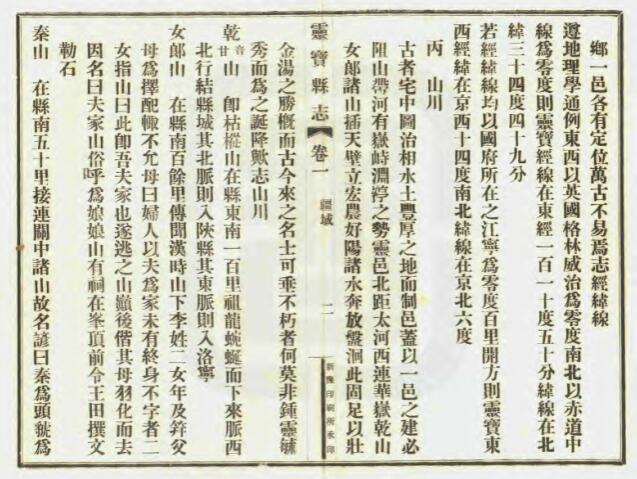 鄉一邑各有定位萬古不易焉志經緯線
遵地理學通例東西以英國格林威治爲零度南北以赤道中
線爲零度則靈寶經線在東經一百一十度五十分緯線在北
緯三十四度四十九分
若經緯線均以國府所在之江寧爲零度百里開方則靈寶東
西經緯在京西十四度南北緯線在京北六度
丙 山川
古者宅中圖治相水土豐厚之地而制邑蓋以一邑之建必
阻山帶河有嶽峙淵渟之勢靈邑北距太河西連華嶽乾山
女郎諸山插天壁立宏農好陽諸水奔放盤洄此固足以壯
靈寶縣志 卷一 疆域 二 新豫印刷所承印
金湯之勝概而古今來之名士可垂不朽者何莫非鍾靈毓
秀而爲之誕降歟志山川
乾音甘山 卽枯樅山在縣東南一百里祖龍蜿蜒而下來脈西
北行結縣城其北脈則入陝縣其東脈則入洛寧
女郎山 在縣南百餘里傳聞漢時山下李姓二女年及笄父
母爲擇配輙不允母曰婦人以夫爲家未有終身不字者二
女指山曰此卽吾夫家也遂逃之山巔後偕其母羽化而去
因名曰夫家山俗呼爲娘娘山有祠在峯頂前令王田撰文
勒石
秦山 在縣南五十里接連關中諸山故名諺曰秦爲頭虢爲